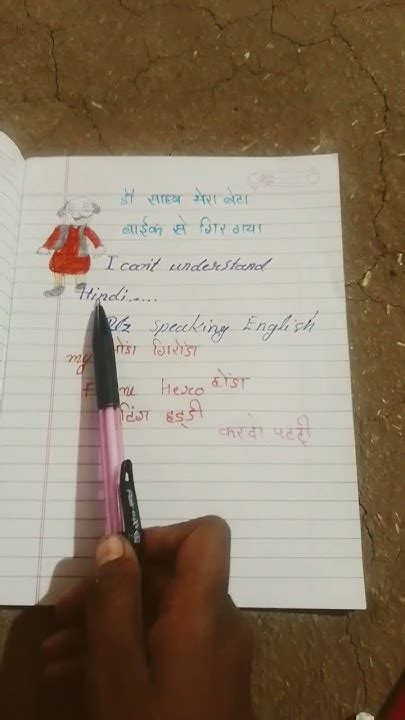 डॉ साहब मेरा बेटा
बाईक से गिर गया
I can't understand
Hindi.....
Plz speaking English
my गिरोंडा
Hero होंडा
टिंग हड्डी
करदो पटट्री